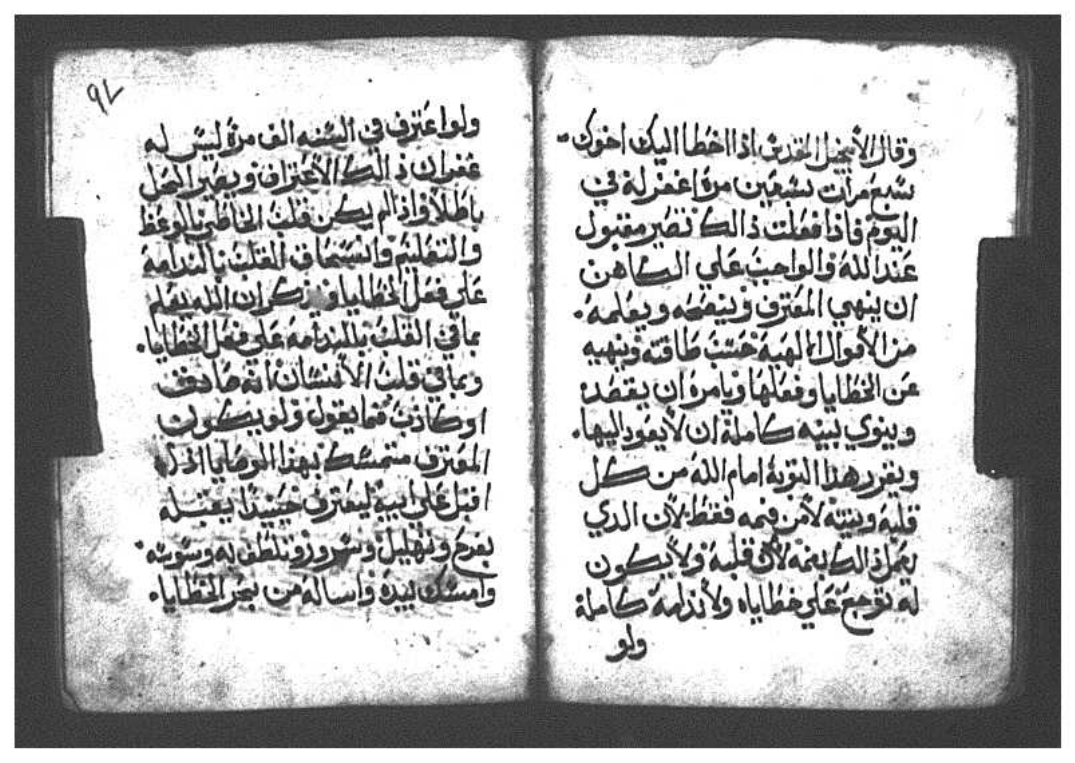 وقال الانجيل المقدس اذا اخطا اليك اخوك
سبع مرات سبعين مرة اغفر له في
اليوم فاذا فعلت ذالك تصير مقبول
عند الله والواجب علي الكاهن
ان ينهي المعترف وينصحه ويعلمه
من الاقوال الالهيه حسب طاقته وينهيه
عن الخطايا وفعلها ويامره ان يقصد
وينوي نيىه كاملة ان لا يعود اليها
ويقرر هذا التوبة امام الله من كل
قلبه ونيته لا من فمه فقط لان الدي
يعمل ذالك بفمه لا من قلبه ولا يكون
له توجع علي خطاياه ولا ندامه كاملة
ولو
٩٢
ولو اعترف في السنه الف مرة ليس له
غفران ذالك الاعتراف ويصير العمل
باطلا واذا لم يكن قلب الخاطي بالوعظ
والتغليه والنسحاق القلب بالندامه
علي فعل الخطايا وان الله يعلم
بما في القلب بالندامه علي فعل الخطايا
وبما في قلب الانسان انه صادق
او كاذب فيما يقول ولو يكون
المعترف متمسك بهذا الوصايا الذي
اقبل علي ابيه ليعترف حينيذا يقبله
بفرح وتهليل وسرور وتلطف به وسوسه
وامسك بيده واساله من بحر الخطايا